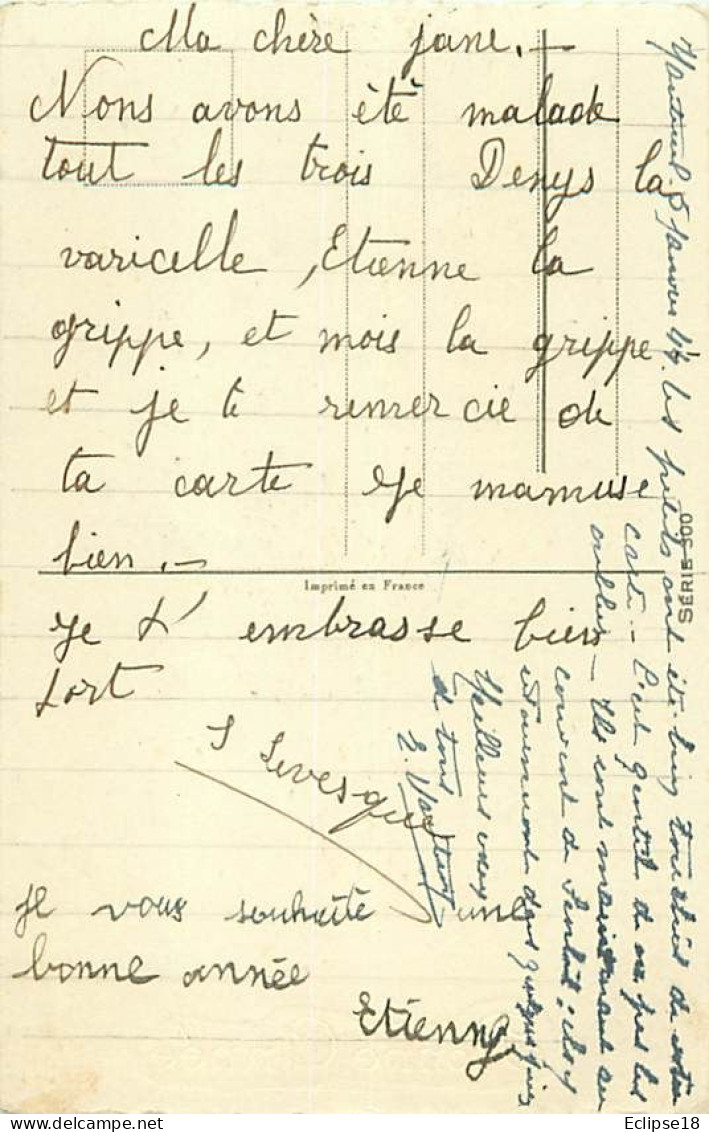 Ma chère jane.—
Nous avons été malade
tout les trois Denys la
varicelle, Etienne la
grippe, et mois la grippe
et je te remercie de
ta carte Je mamuse
bien.—
Imprimé en France
Je t' embrasse bien
fort
S Levesque
je vous souhaite une
bonne année
Etienne
5 janvier 47. Les petits ont été bien touchés de votre
carte — C'est gentil de ne pas les
oublier — Ils sont maintenant au
couvent de
dans quelques jours
Meilleurs vœux
de tous
E.
SÉRIE 500
Eclipse18